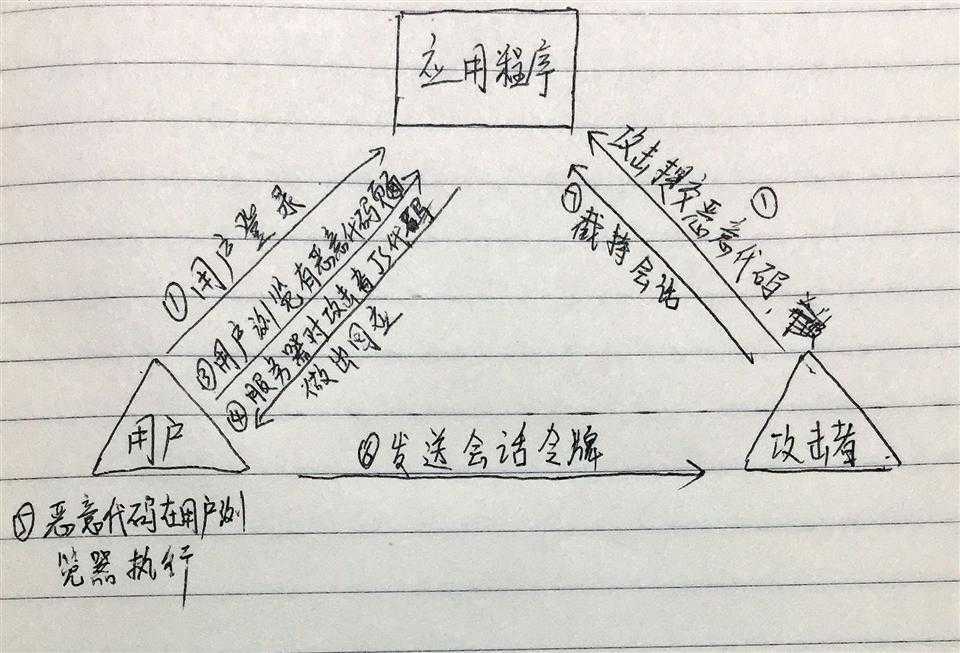 应用程序
①用户登录
③用户浏览有恶意代码页面
④服务器对攻击者JS代码
做出回应
攻击提交恶意代码 ①
⑦截持会话
用户
⑥发送会话令牌
攻击者
⑤恶意代码在用户浏
览器执行